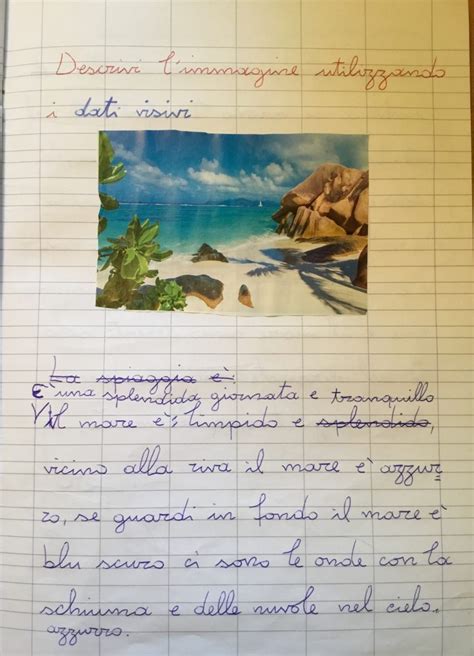 Descrivi l'immagine utilizzando
i dati visivi
La spiaggia è:
È una splendida giornata e tranquillo
il mare è: limpido e splendido,
vicino alla riva il mare è azzur
ro, se guardi in fondo il mare è
blu scuro ci sono le onde con la
schiuma e delle nuvole nel cielo.
azzurro.